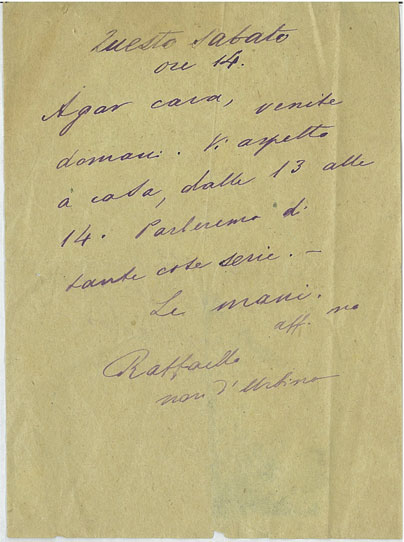 Questo sabato
ore 14.
Agar cara, venite
domani. Vi aspetto
a casa, dalle 13 alle
14. Parleremo di
tante cose serie. –
Le mani.
aff. mo
Raffaello
non d'Urbino